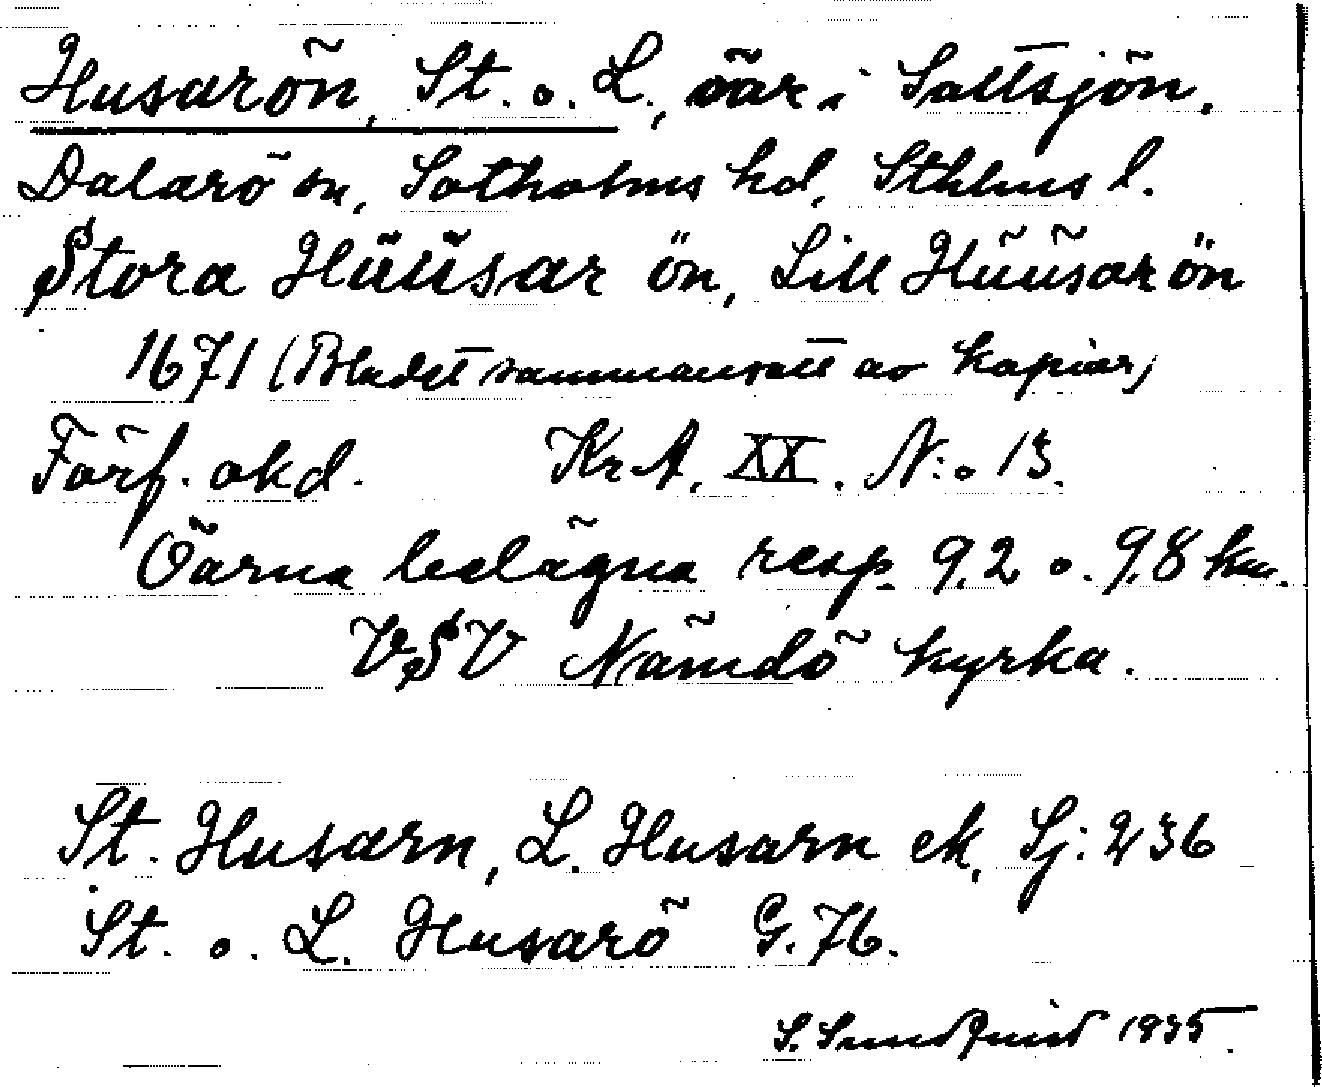 Husarön, St. o. L., öar i Saltsjön.
Dalarö sn, Sotholms hd, Sthlms l.
Stora Hüüsar ön, Lill Hüüsar ön
1671 (Bladet sammansatt av kopior)
Förf. okd. Kr.A. XX. N:o 13.
Öarna belägna resp. 9,2 o. 9,8 km.
VSV Nämdö kyrka.
St. Husarn, L. Husarn ek, Sj: 236
St. o. L. Husarö G. 76.
S. Sundquist 1935.